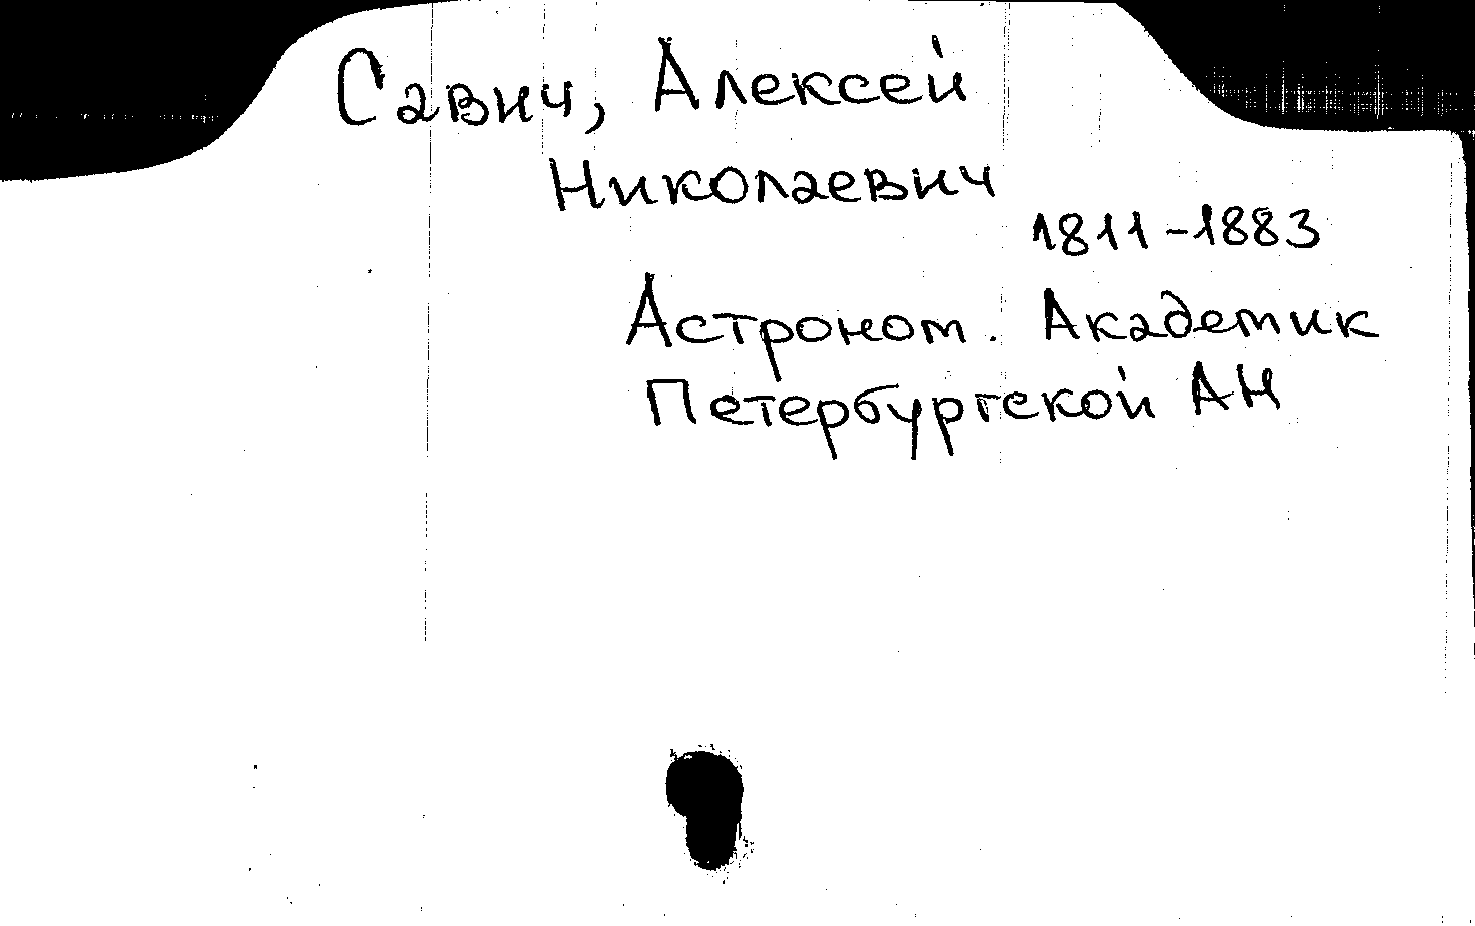 Савич, Алексей
Николаевич
1811-1883
Астроном. Академик
Петербургской АН